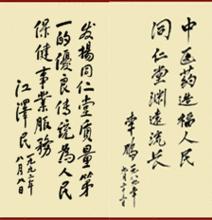 中医药造福人民
同仁堂渊远流长
李鹏
一九九〇年
九月二十三日
发揚同仁堂质量第
一的優良傳统為人民
保健事業服務
江澤民
一九九二年
八月八日